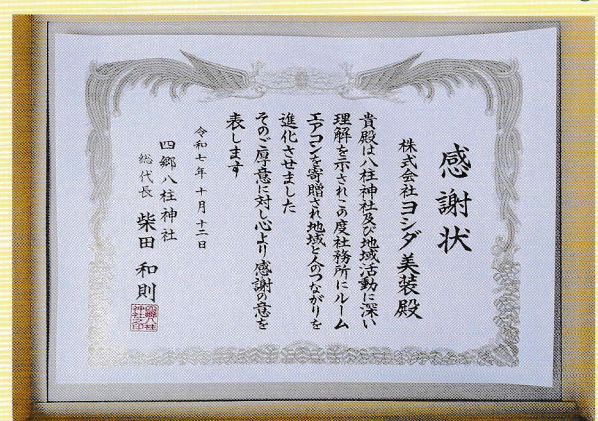 感謝状
株式会社ヨシダ美装殿
貴殿は八柱神社及び地域活動に深い
理解を示されこの度社務所にルーム
エアコンを寄贈され地域と人のつながりを
進化させました
そのご厚意に対し心より感謝の意を
表します
令和七年十月十二日
四郷八柱神社
総代長 柴田和則
四郷八柱神社之印